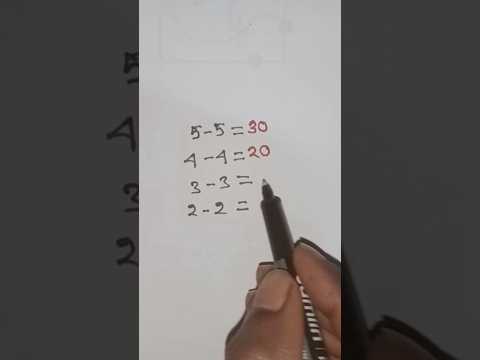 5-5=30
4-4=20
3-3=
2-2=